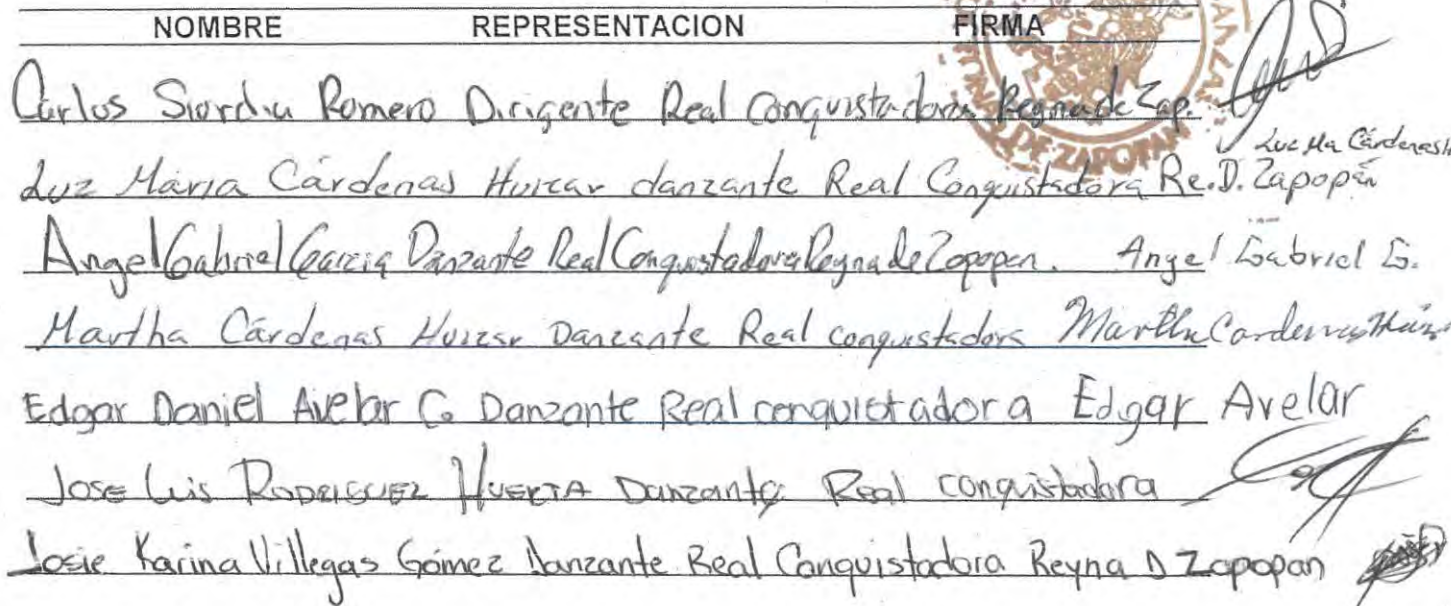 NOMBRE REPRESENTACION FIRMA
Carlos Siordia Romero Dirigente Real Conquistadora Reyna de Zap.
Luz Ma Cárdenas H
Luz María Cárdenas Huizar danzante Real Conquistadora Re.D. Zapopán
Angel Gabriel Garcia Danzante Real Conquistadora Reyna de Zopopan. Angel Gabriel G.
Martha Cárdenas Huizar Danzante Real conquistadora Martha Cardenas Huizar
Edgar Daniel Avelar C. Danzante Real conquistadora Edgar Avelar
Jose Luis RODRIGUEZ HUERTA Danzante Real conquistadora
Josie Karina Villegas Gómez Danzante Real Conquistadora Reyna D Zapopan
DE ZAPOPAN